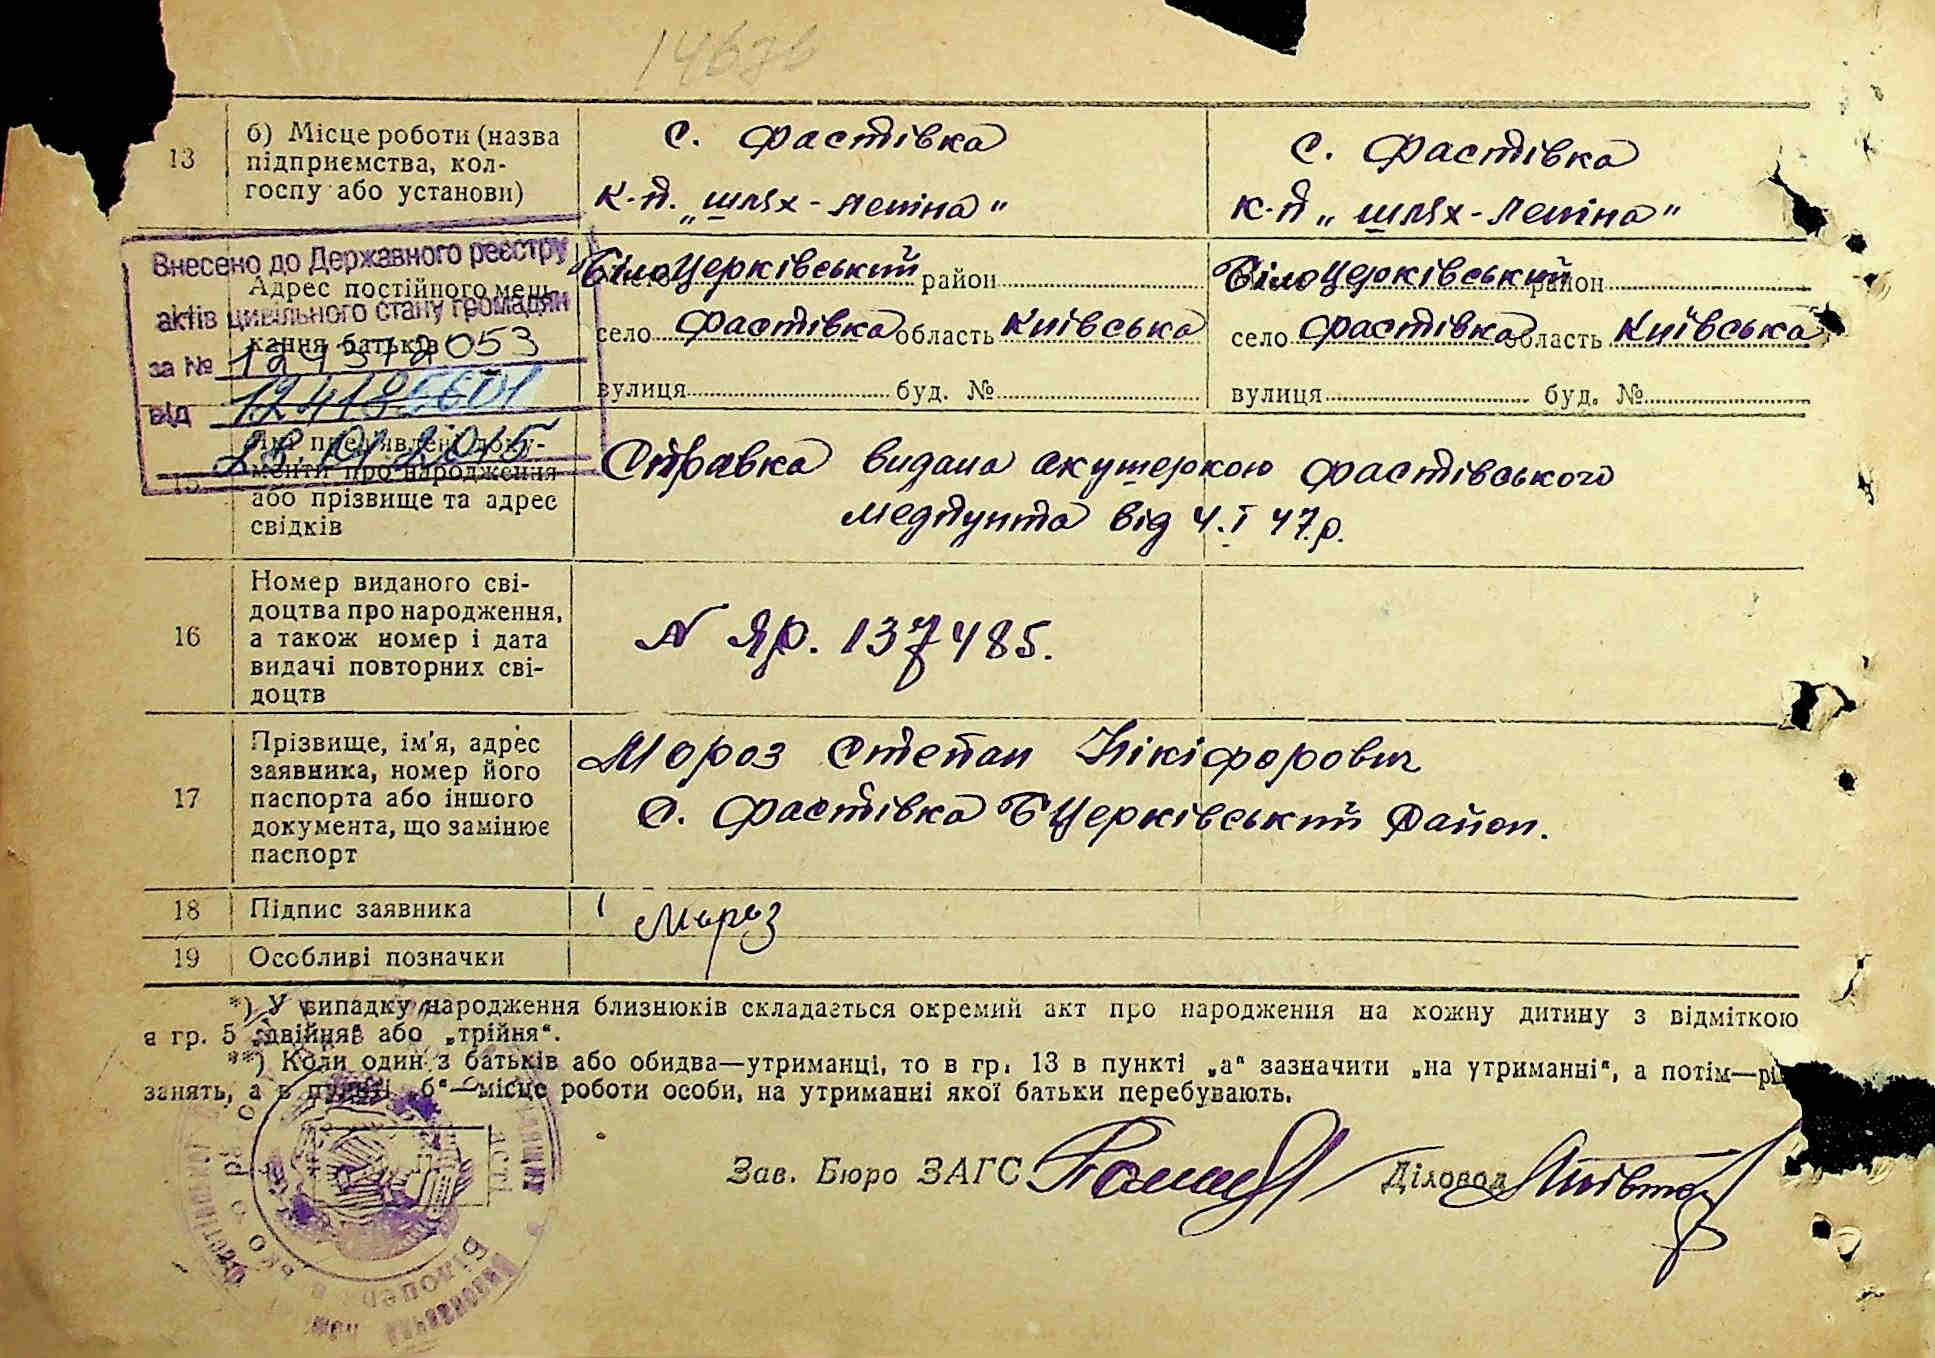 13
б) Місце роботи (назва
підприємства, кол-
госпу або установи)
с. Фастівка
к-п. „шлях-Леніна"
с. Фастівка
к-п „шлях-Леніна"
Внесено до Державного реєстру
актів цивільного стану громадян
за №
053
від
124185601
28.01.2015
Адрес постійного меш-
кання батьків
БілоЦерківський район
село Фастівка область Київська
вулиця буд. №
БілоЦерківський район
село Фастівка область Київська
вулиця буд. №
15
менти про народження
або прізвище та адрес
свідків
Справка видана акушеркою Фастівського
медпункта від 4.I 47.р.
16
Номер виданого сві-
доцтва про народження,
а також номер і дата
видачі повторних сві-
доцтв
N ЯР. 137485.
17
Прізвище, ім'я, адрес
заявника, номер його
паспорта або іншого
документа, що замінює
паспорт
Мороз Степан Нікіфорович
с. Фастівка БЦерківський район.
18
Підпис заявника
Мороз
19
Особливі позначки
*) У випадку народження близнюків складається окремий акт про народження на кожну дитину з відміткою
в гр. 5 „двійня" або „трійня".
**) Коли один з батьків або обидва—утриманці, то в гр. 13 в пункті „а" зазначити „на утриманні", а потім—рід
занять, а в пункті „б"—місце роботи особи, на утриманні якої батьки перебувають.
Зав. Бюро ЗАГС
Діловод